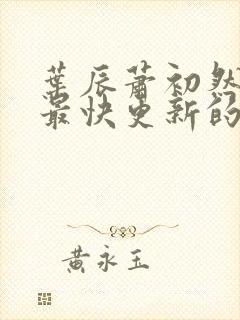 葉辰蕭初然
最快更新的
黃永玉